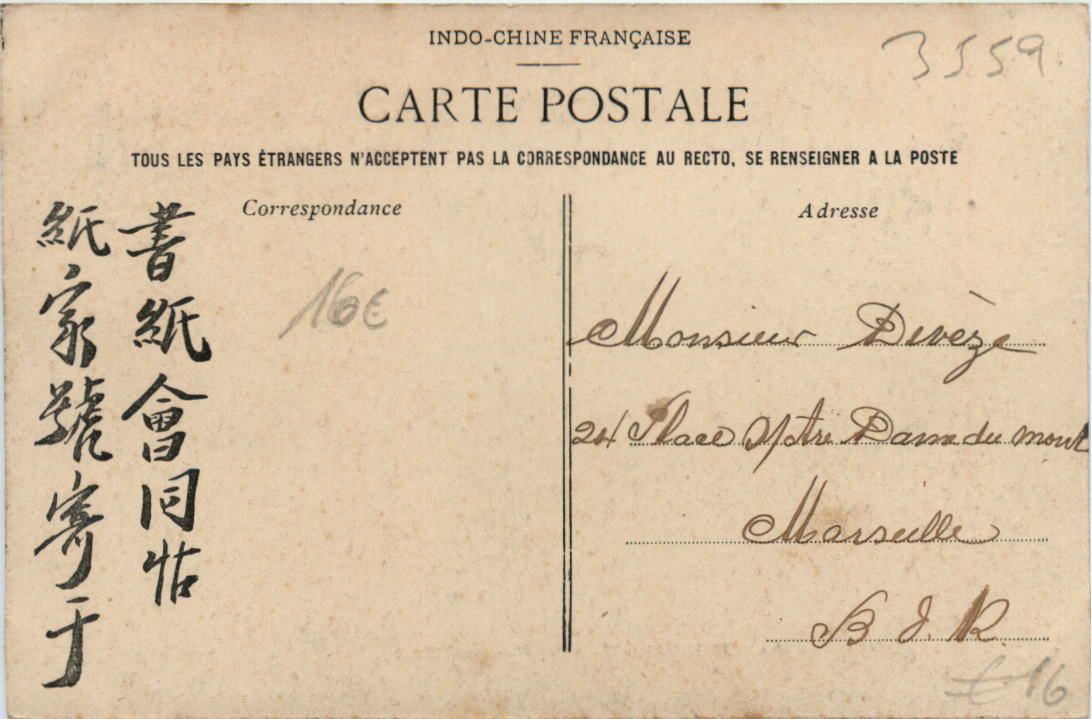 INDO-CHINE FRANÇAISE
3559
CARTE POSTALE
TOUS LES PAYS ÉTRANGERS N'ACCEPTENT PAS LA CORRESPONDANCE AU RECTO, SE RENSEIGNER A LA POSTE
Correspondance
書紙會同帖
紙家號寄于
16€
Adresse
Monsieur Devèze
24 Place Notre Dame du mont
Marseille
B. d. R.
€16